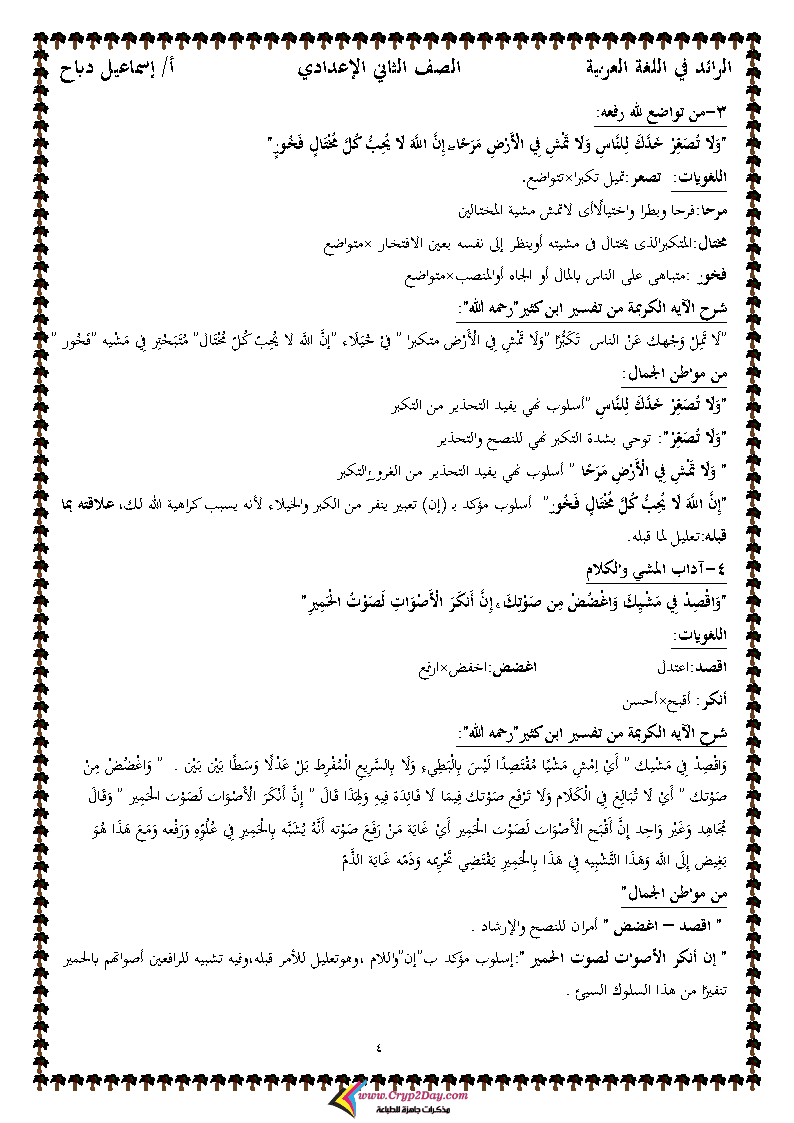 الرائد في اللغة العربية الصف الثاني الإعدادي أ/ إسماعيل دباح
٣-من تواضع لله رفعه:
"وَلَا تُصَعِّرْ خَدَّكَ لِلنَّاسِ وَلَا تَمْشِ فِي الْأَرْضِ مَرَحًا ۖ إِنَّ اللَّهَ لَا يُحِبُّ كُلَّ مُخْتَالٍ فَخُورٍ"
اللغويات: تصعر:تميل تكبرا×تتواضع.
مرحا:فرحا وبطرا واختيالًاأى لاتمش مشية المختالين
مختال:المتكبرالذى يختال فى مشيته أوينظر إلى نفسه بعين الافتخار ×متواضع
فخور :متباهى على الناس بالمال أو الجاه أوالمنصب×متواضع
شرح الآيه الكريمة من تفسير ابن كثير"رحمه الله":
"لَا تَمِلْ وَجْهك عَنْ الناس تَكَبُّرًا "وَلَا تَمْشِ فِي الْأَرْض متكبرا " فيْ خُيَلَاء "إنَّ اللَّه لا يُحِبّ كُلّ مُخْتَال" مُتَبَخْتِر فِي مَشْيه "فَخُور "
من مواطن الجمال:
"وَلَا تُصَعِّرْ خَدَّكَ لِلنَّاسِ "أسلوب نهي يفيد التحذير من التكبر
"وَلَا تُصَعِّرْ": توحي بشدة التكبر نهي للنصح والتحذير
" وَلَا تَمْشِ فِي الْأَرْضِ مَرَحًا " أسلوب نهي يفيد التحذير من الغروروالتكبر
"إِنَّ اللَّهَ لَا يُحِبُّ كُلَّ مُخْتَالٍ فَخُورٍ" أسلوب مؤكد بـ (إن) تعبير ينفر من الكبر والخيلاء لأنه يسبب كراهية الله لك، علاقته بما
قبله:تعليل لما قبله.
٤-آداب المشي والكلام
"وَاقْصِدْ فِي مَشْيِكَ وَاغْضُضْ مِن صَوْتِكَ ۚ إِنَّ أَنكَرَ الْأَصْوَاتِ لَصَوْتُ الْحَمِيرِ"
اللغويات:
اقصد:اعتدل اغضض:اخفض×ارفع
أنكر: أقبح×أحسن
شرح الآيه الكريمة من تفسير ابن كثير"رحمه الله":
وَاقْصِدْ فِي مَشْيك " أَيْ اِمْشِ مَشْيًا مُقْتَصِدًا لَيْسَ بِالْبَطِيءِ وَلَا بِالسَّرِيعِ الْمُفْرِط بَلْ عَدْلًا وَسَطًا بَيْن بَيْن . " وَاغْضُضْ مِنْ
صَوْتك " أَيْ لَا تُبَالِغ فِي الْكَلَام وَلَا تَرْفَع صَوْتك فِيمَا لَا فَائِدَة فِيهِ وَلِهَذَا قَالَ " إِنَّ أَنْكَرَ الْأَصْوَات لَصَوْت الْحَمِير " وَقَالَ
مُجَاهِد وَغَيْر وَاحِد إِنَّ أَقْبَح الْأَصْوَات لَصَوْت الْحَمِير أَيْ غَايَة مَنْ رَفَعَ صَوْته أَنَّهُ يُشَبَّه بِالْحَمِيرِ فِي عُلُوّهِ وَرَفْعه وَمَعَ هَذَا هُوَ
بَغِيض إِلَى اللَّه وَهَذَا التَّشْبِيه فِي هَذَا بِالْحَمِيرِ يَقْتَضِي تَحْرِيمه وَذَمّه غَايَة الذَّمّ
من مواطن الجمال"
" اقصد – اغضض " أمران للنصح والإرشاد .
" إن أنكر الأصوات لصوت الحمير ":إسلوب مؤكد ب"إن"واللام ،وهوتعليل للأمر قبله،وفيه تشبيه للرافعين أصواتهم بالحمير
تنفيرًا من هذا السلوك السيئ .
٤
www.Cryp2Day.com
مذكرات جاهزة للطباعة